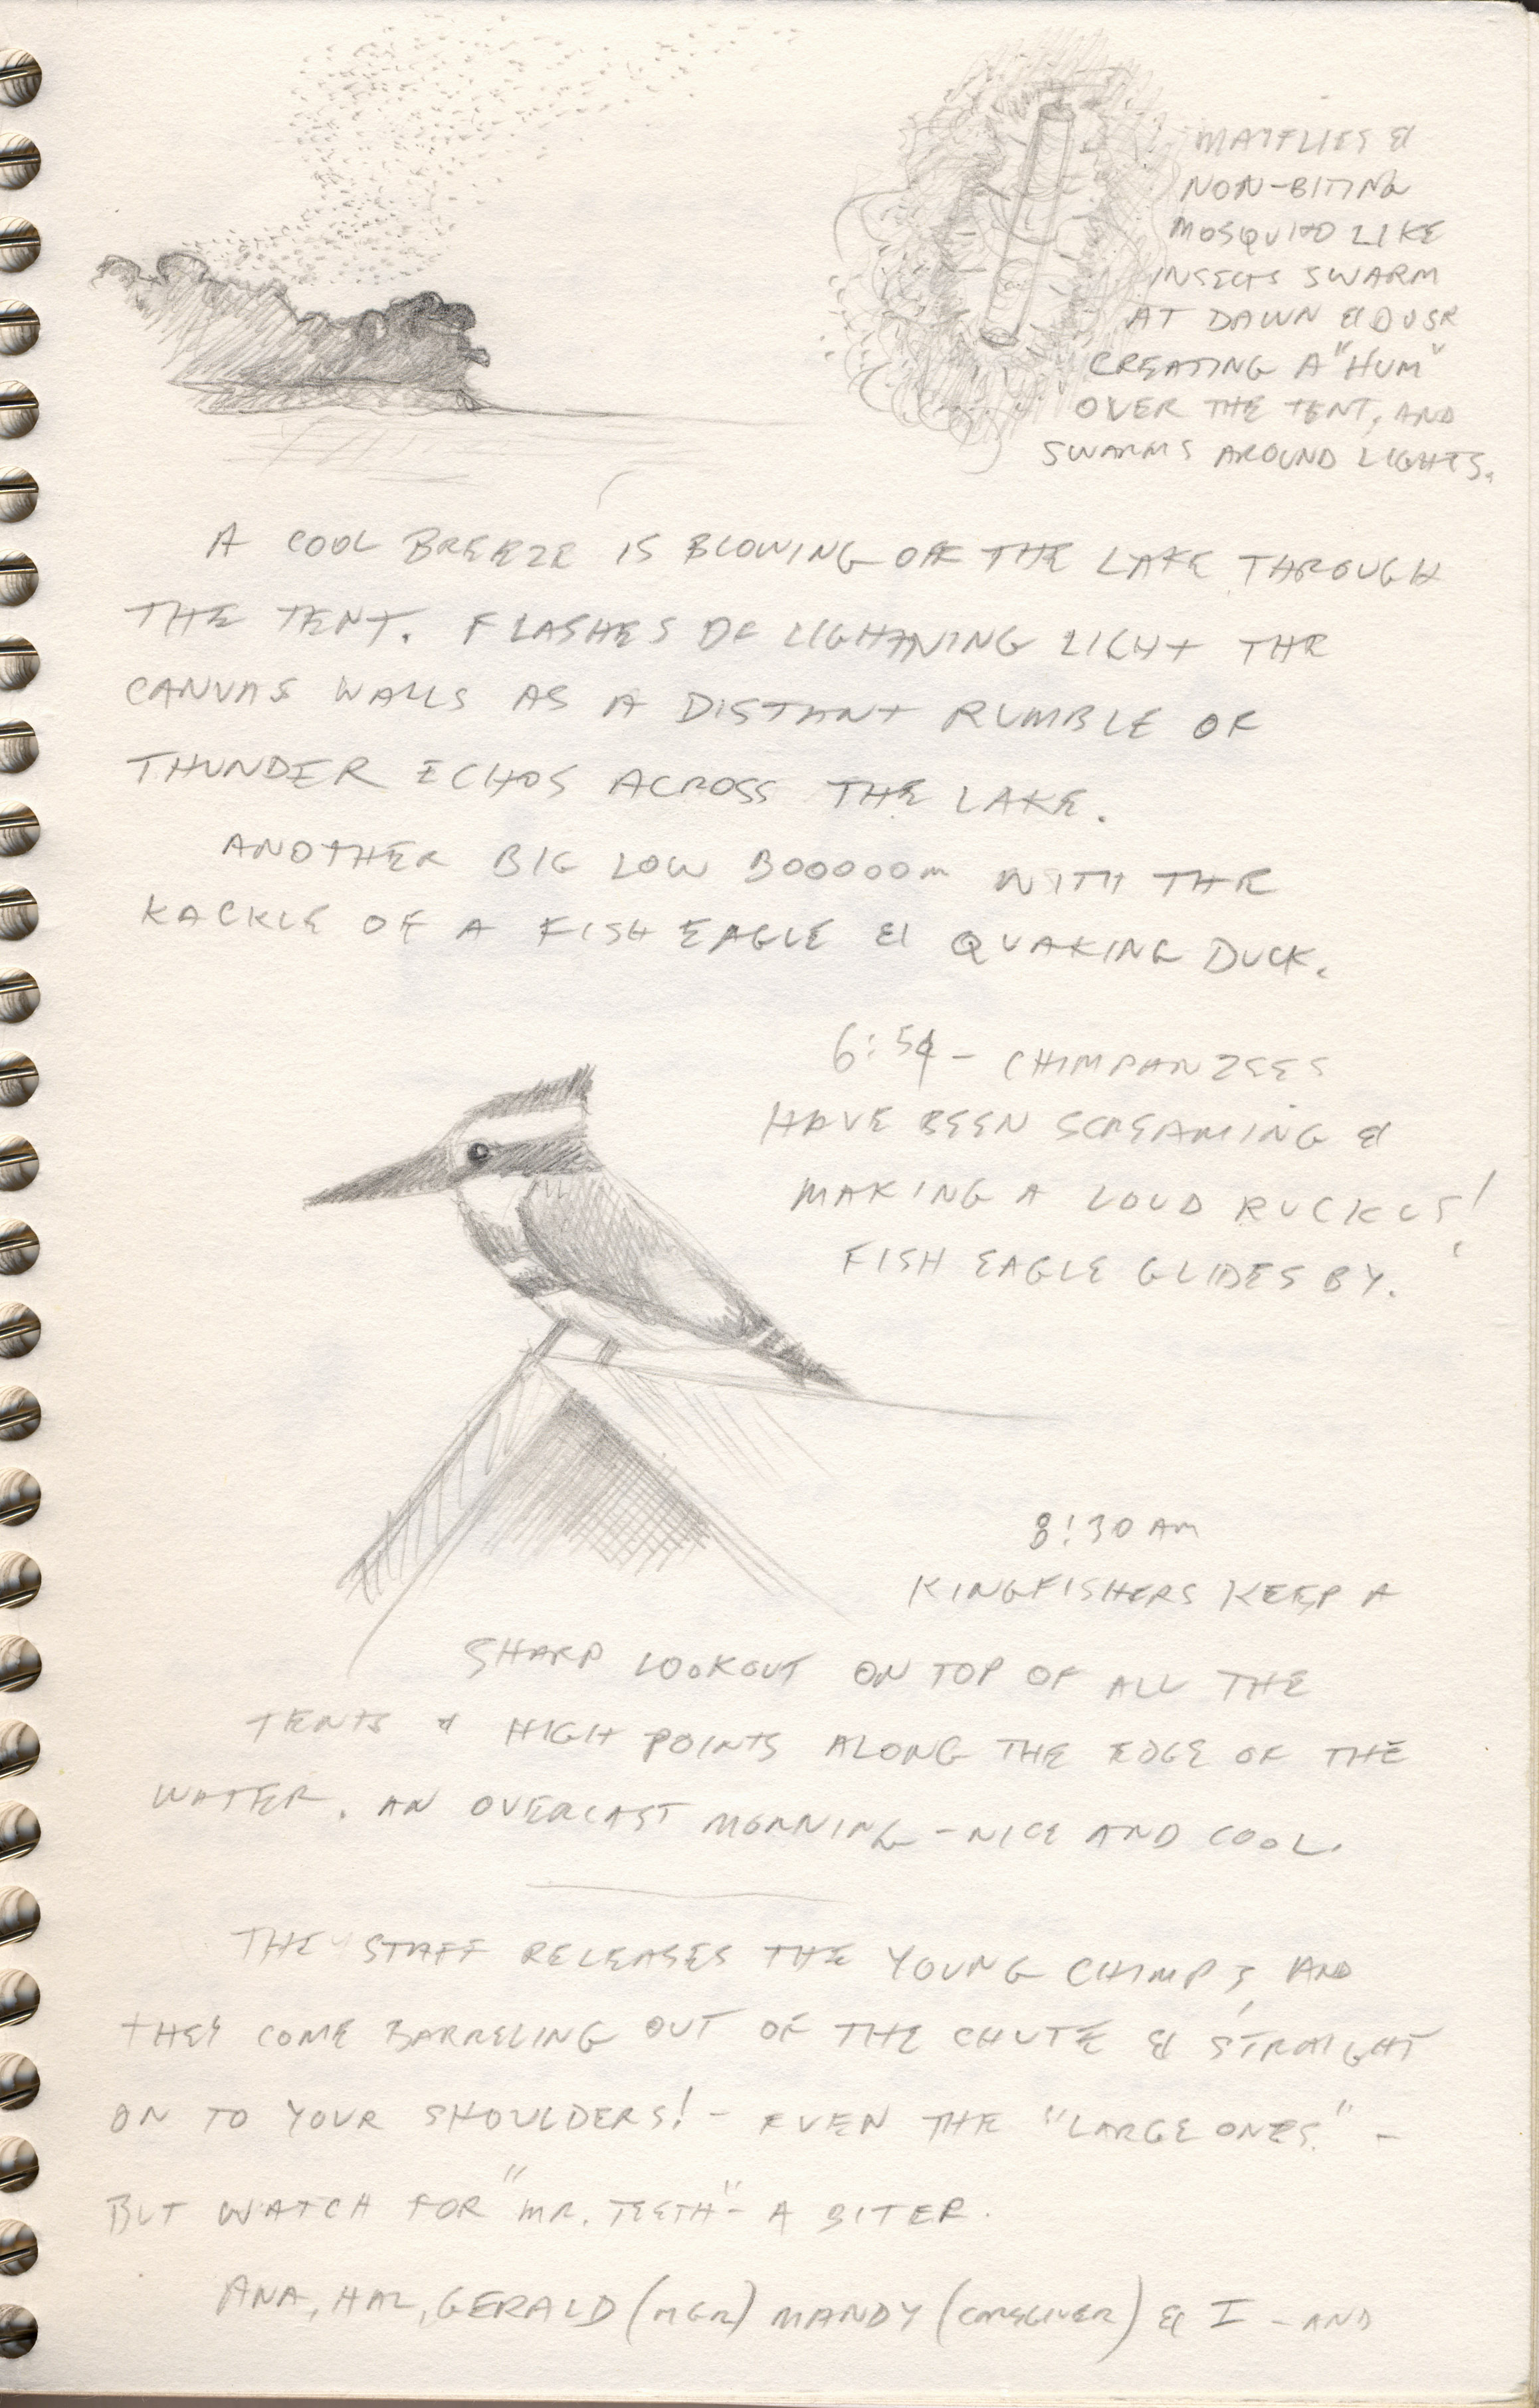 MAYFLIES &
NON-BITING
MOSQUITO LIKE
INSECTS SWARM
AT DAWN & DUSK
CREATING A "HUM"
OVER THE TENT, AND
SWARMS AROUND LIGHTS.
A COOL BREEZE IS BLOWING OFF THE LAKE THROUGH
THE TENT. FLASHES OF LIGHTNING LIGHT THE
CANVAS WALLS AS A DISTANT RUMBLE OF
THUNDER ECHOS ACROSS THE LAKE.
ANOTHER BIG LOW BOOOOOM WITH THE
KACKLE OF A FISH EAGLE & QUAKING DUCK.
6:54 - CHIMPANZEES
HAVE BEEN SCREAMING &
MAKING A LOUD RUCKUS!
FISH EAGLE GLIDES BY.
8:30 AM
KINGFISHERS KEEP A
SHARP LOOKOUT ON TOP OF ALL THE
TENTS & HIGH POINTS ALONG THE EDGE OF THE
WATER. AN OVERCAST MORNING - NICE AND COOL.
THE STAFF RELEASES THE YOUNG CHIMPS, AND
THEY COME BARRELING OUT OF THE CHUTE & STRAIGHT
ON TO YOUR SHOULDERS! - EVEN THE "LARGE ONES" -
BUT WATCH FOR "MR. TEETH" - A BITER.
ANA, HAL, GERALD (MGR) MANDY (CAREGIVER) & I - AND